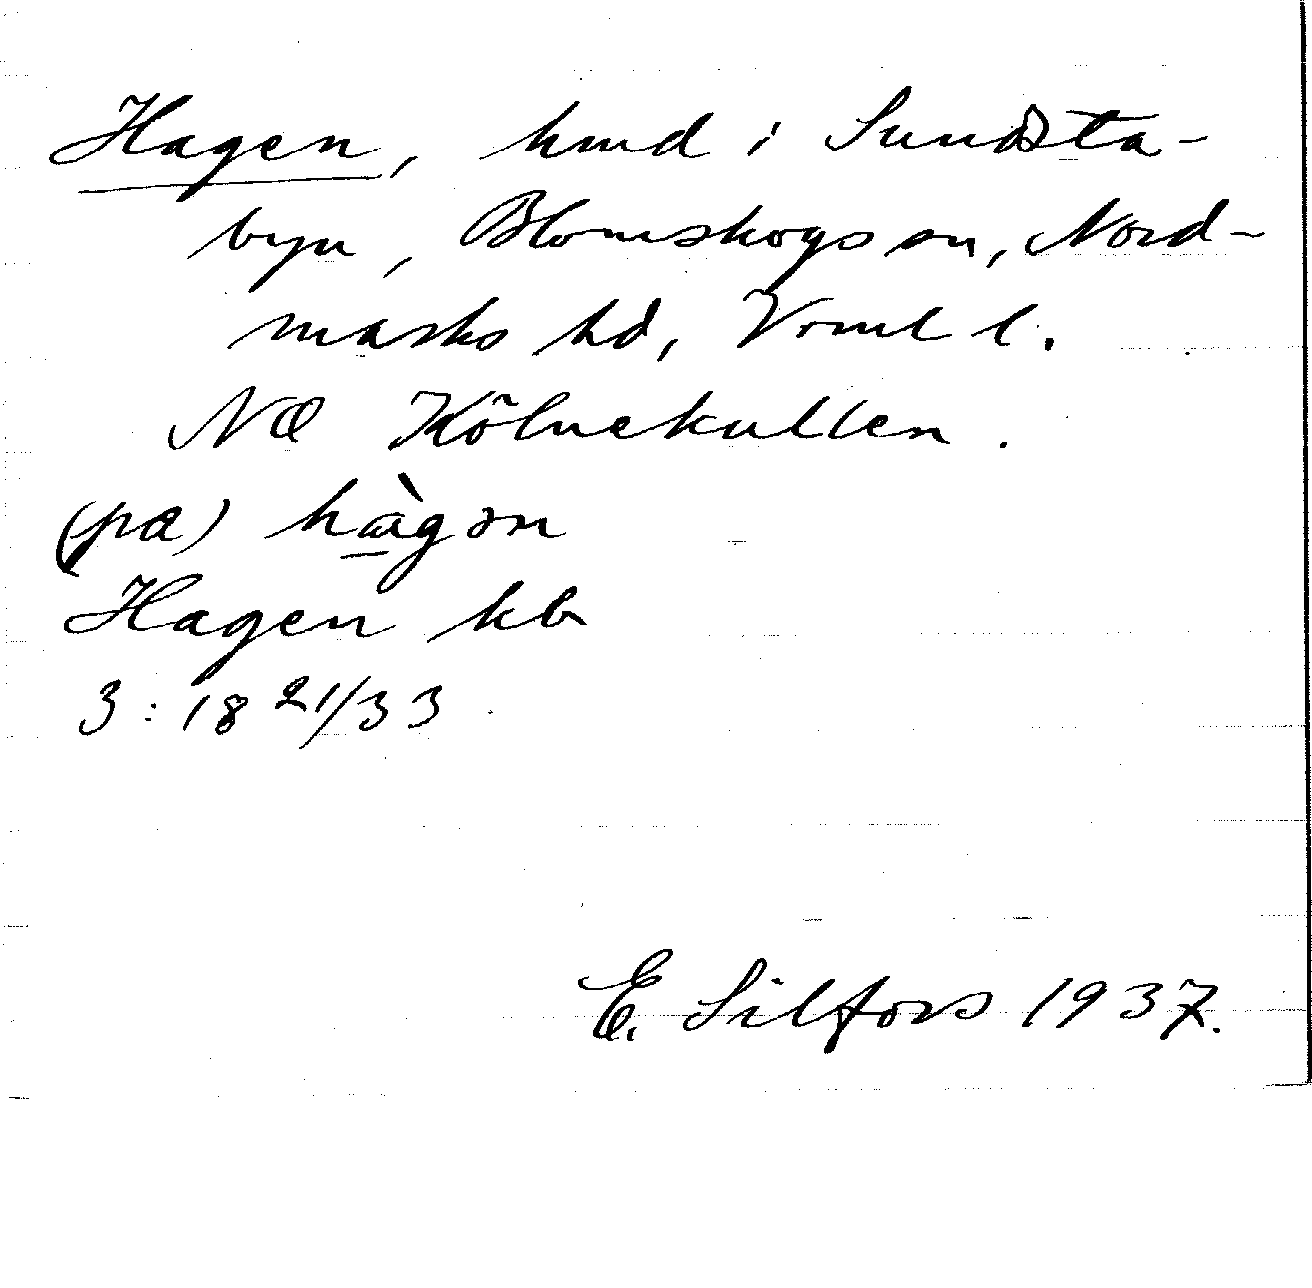 Hagen, hmd i Sundsta-
byn, Blomskogs sn, Nord-
marks hd, Vrml l.
NO Kölnekullen.
(pa) hàgən
Hagen kb
3:18 21/33
E. Silfors 1937.